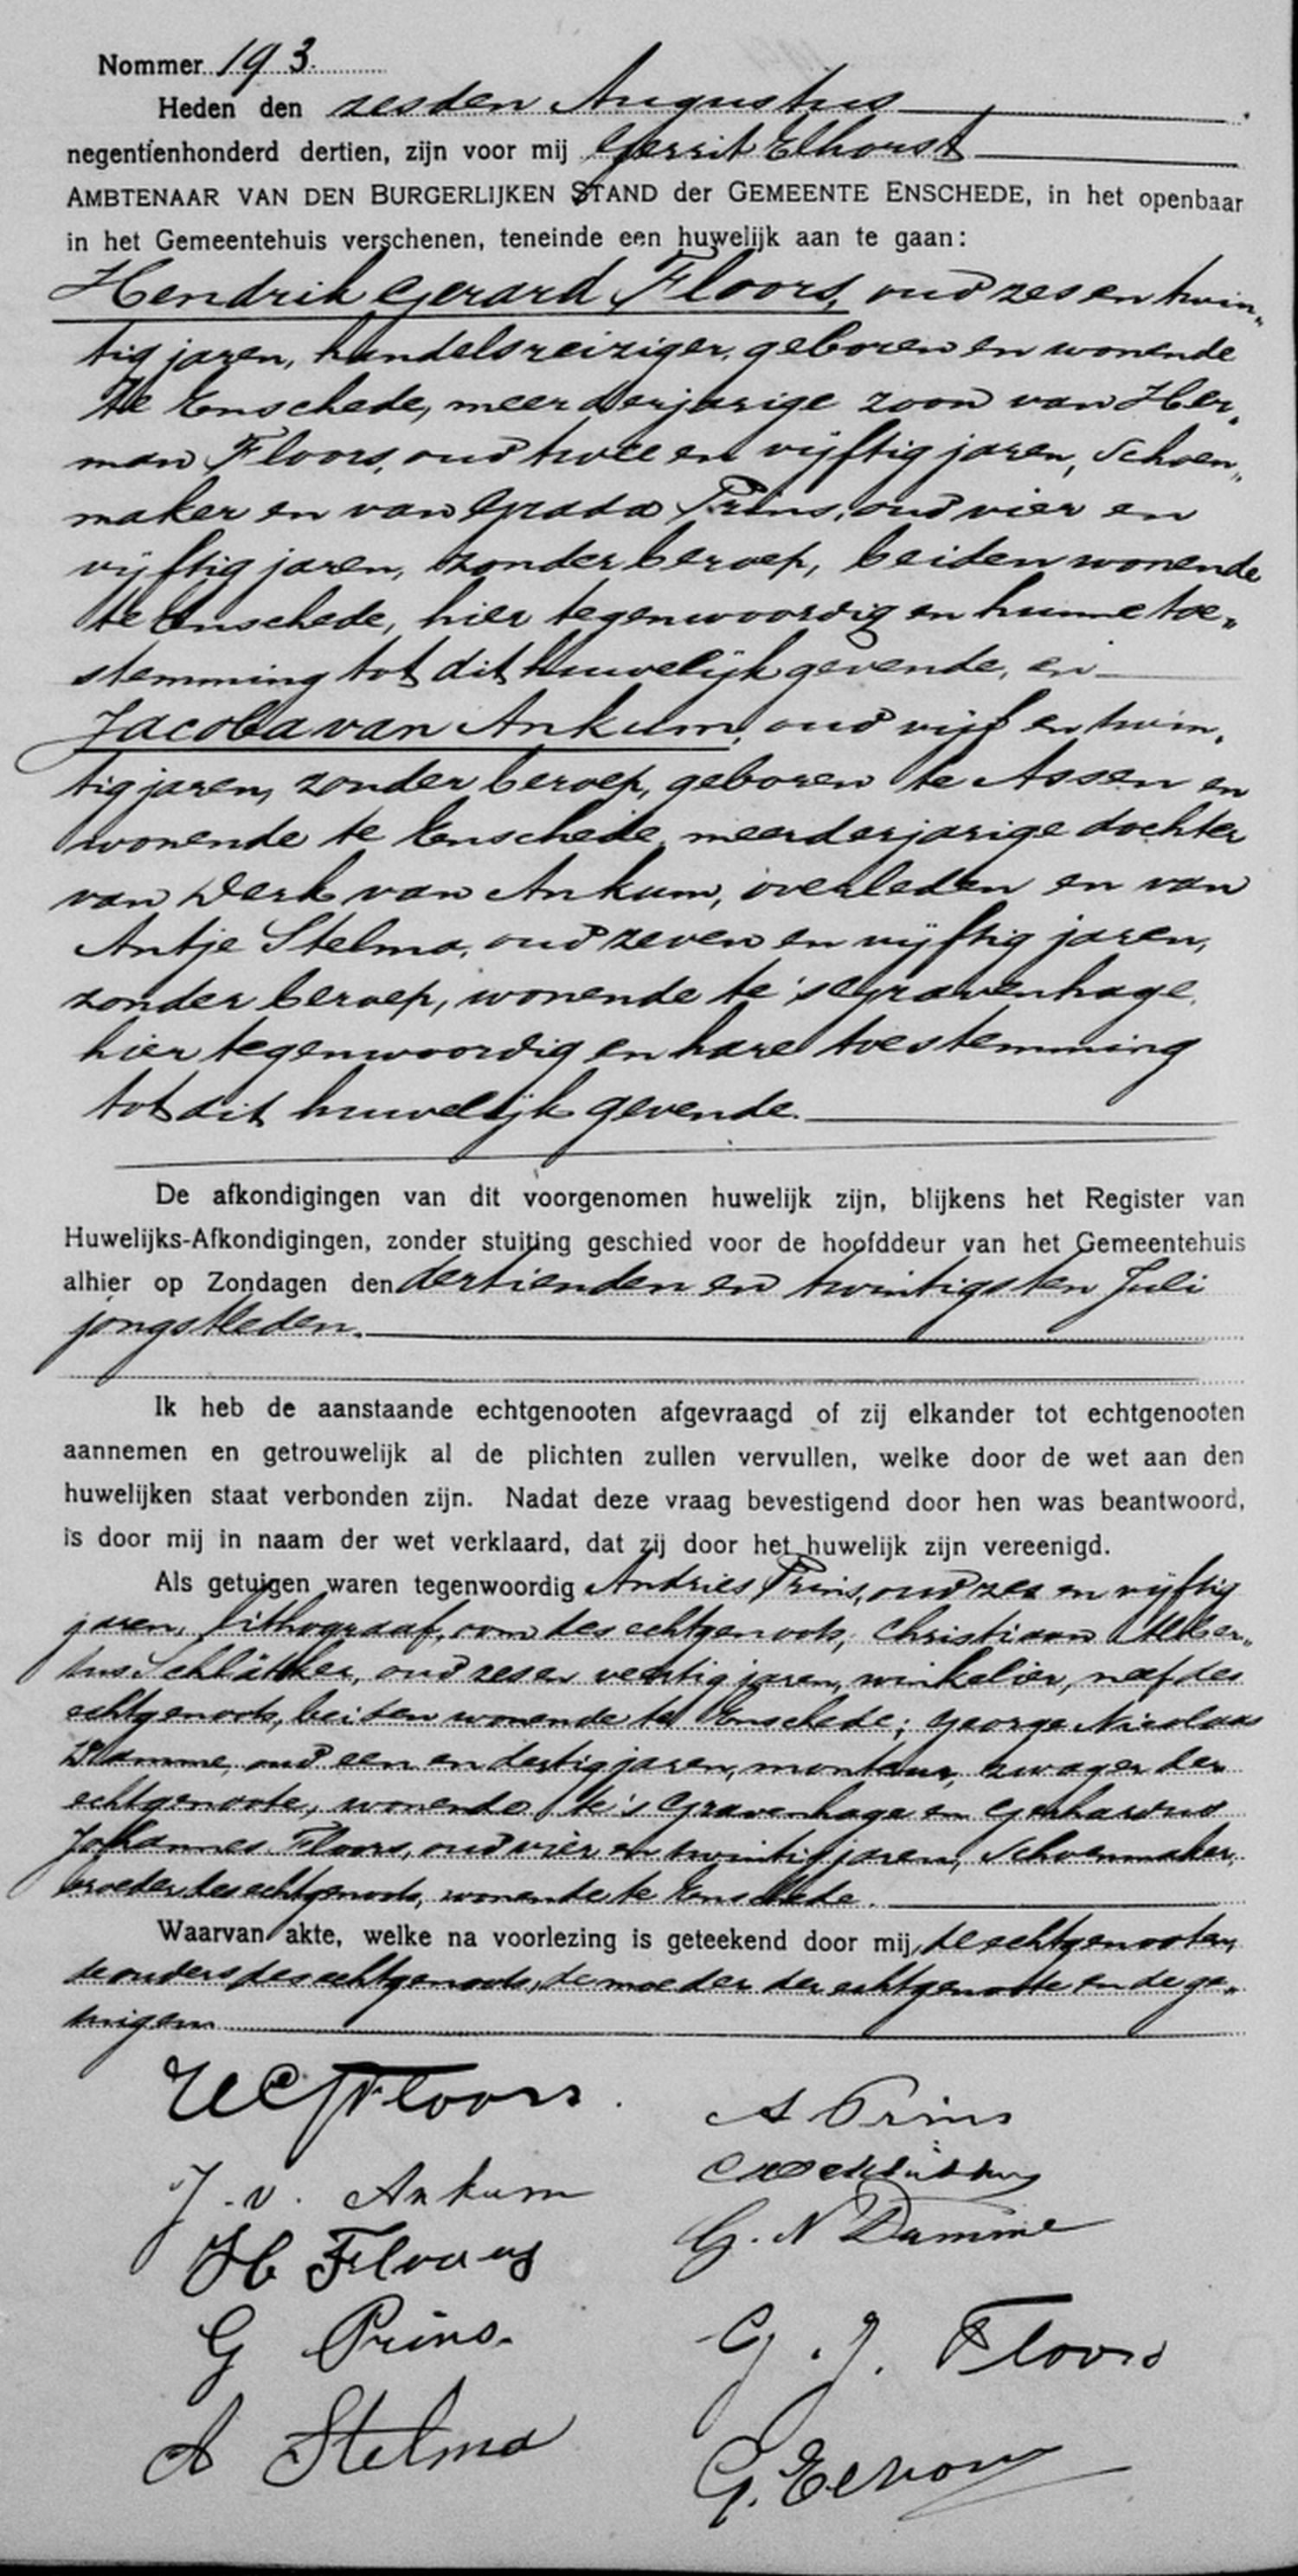 Nommer 193.
Heden den zesden Augustus
negentienhonderd dertien, zijn voor mij Gerrit Elhorst
AMBTENAAR VAN DEN BURGERLIJKEN STAND der GEMEENTE ENSCHEDE, in het openbaar
in het Gemeentehuis verschenen, teneinde een huwelijk aan te gaan:
Hendrik Gerard Floors, oud zes en twin„
tig jaren, handelsreiziger, geboren en wonende
te Enschede, meerderjarige zoon van Her„
man Floors, oud twee en vijftig jaren, Schoen„
maker en van Grada Prins, oud vier en
vijftig jaren, zonder beroep, beiden wonende
te Enschede, hier tegenwoordig en hunne toe„
stemming tot dit huwelijk gevende, en
Jacoba van Ankum, oud vijf en twin„
tig jaren, zonder beroep, geboren te Assen en
wonende te Enschede, meerderjarige dochter
van Derk van Ankum, overleden en van
Antje Stelma, oud zeven en vijftig jaren,
zonder beroep, wonende te 's Gravenhage,
hier tegenwoordig en hare toestemming
tot dit huwelijk gevende.
De afkondigingen van dit voorgenomen huwelijk zijn, blijkens het Register van
Huwelijks-Afkondigingen, zonder stuiting geschied voor de hoofddeur van het Gemeentehuis
alhier op Zondagen den dertienden en twintigsten Juli
jongstleden.
Ik heb de aanstaande echtgenooten afgevraagd of zij elkander tot echtgenooten
aannemen en getrouwelijk al de plichten zullen vervullen, welke door de wet aan den
huwelijken staat verbonden zijn. Nadat deze vraag bevestigend door hen was beantwoord,
is door mij in naam der wet verklaard, dat zij door het huwelijk zijn vereenigd.
Als getuigen waren tegenwoordig Andries Prins, oud zes en vijftig
jaren, lithograaf, oom des echtgenoots, Christiaan Alber„
tus Schlütter, oud zes en veertig jaren, winkelier, neef des
echtgenoots, beiden wonende te Enschede; George Nicolaas
Damme, oud een en dertig jaren, monteur, zwager der
echtgenoote, wonende te 's Gravenhage en Gerhardus
Johannes Floors, oud vier en twintig jaren, Schoenmaker,
broeder des echtgenoots, wonende te Enschede.
Waarvan akte, welke na voorlezing is geteekend door mij, de echtgenooten,
de ouders des echtgenoots, de moeder der echtgenoote en de ge„
tuigen.
HG Floors.
A Prins
J. v. Ankum
H Floors
G. N Damme
G Prins.
G. J. Floors
A Stelma
G. Elhorst